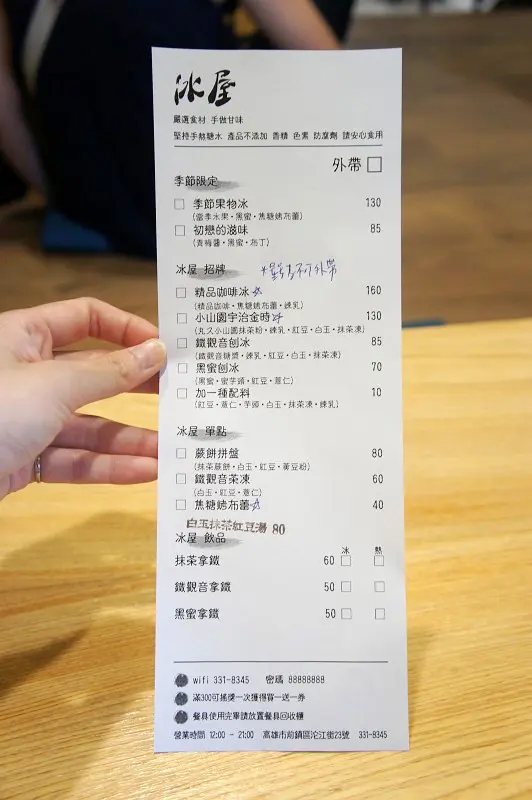 冰屋
嚴選食材 手做甘味
堅持手熬糖水 產品不添加 香精 色素 防腐劑 請安心食用
外帶 □
季節限定
□ 季節果物冰 130
(當季水果·黑蜜·焦糖烤布蕾)
□ 初戀的滋味 85
(青梅醬·黑蜜·布丁)
冰屋 招牌
不可外帶
□ 精品咖啡冰☆ 160
(精品咖啡·焦糖烤布蕾·煉乳)
□ 小山園宇治金時☆ 130
(丸久小山園抹茶粉·煉乳·紅豆·白玉·抹茶凍)
□ 鐵觀音刨冰 85
(鐵觀音糖漿·煉乳·紅豆·白玉·抹茶凍)
□ 黑蜜刨冰 70
(黑蜜·蜜芋頭·紅豆·薏仁)
□ 加一種配料 10
(紅豆·薏仁·芋頭·白玉·抹茶凍·煉乳)
冰屋 單點
□ 蕨餅拼盤 80
(抹茶蕨餅·白玉·紅豆·黃豆粉)
□ 鐵觀音茶凍 60
(白玉·紅豆·薏仁)
□ 焦糖烤布蕾☆ 40
白玉抹茶紅豆湯 80
冰屋 飲品
冰 熱
抹茶拿鐵 60 □ □
鐵觀音拿鐵 50 □ □
黑蜜拿鐵 50 □ □
wifi 331-8345 密碼 88888888
滿300可搖獎一次獲得買一送一券
餐具使用完畢請放置餐具回收櫃
營業時間 12:00 - 21:00 高雄市前鎮區沱江街23號 331-8345